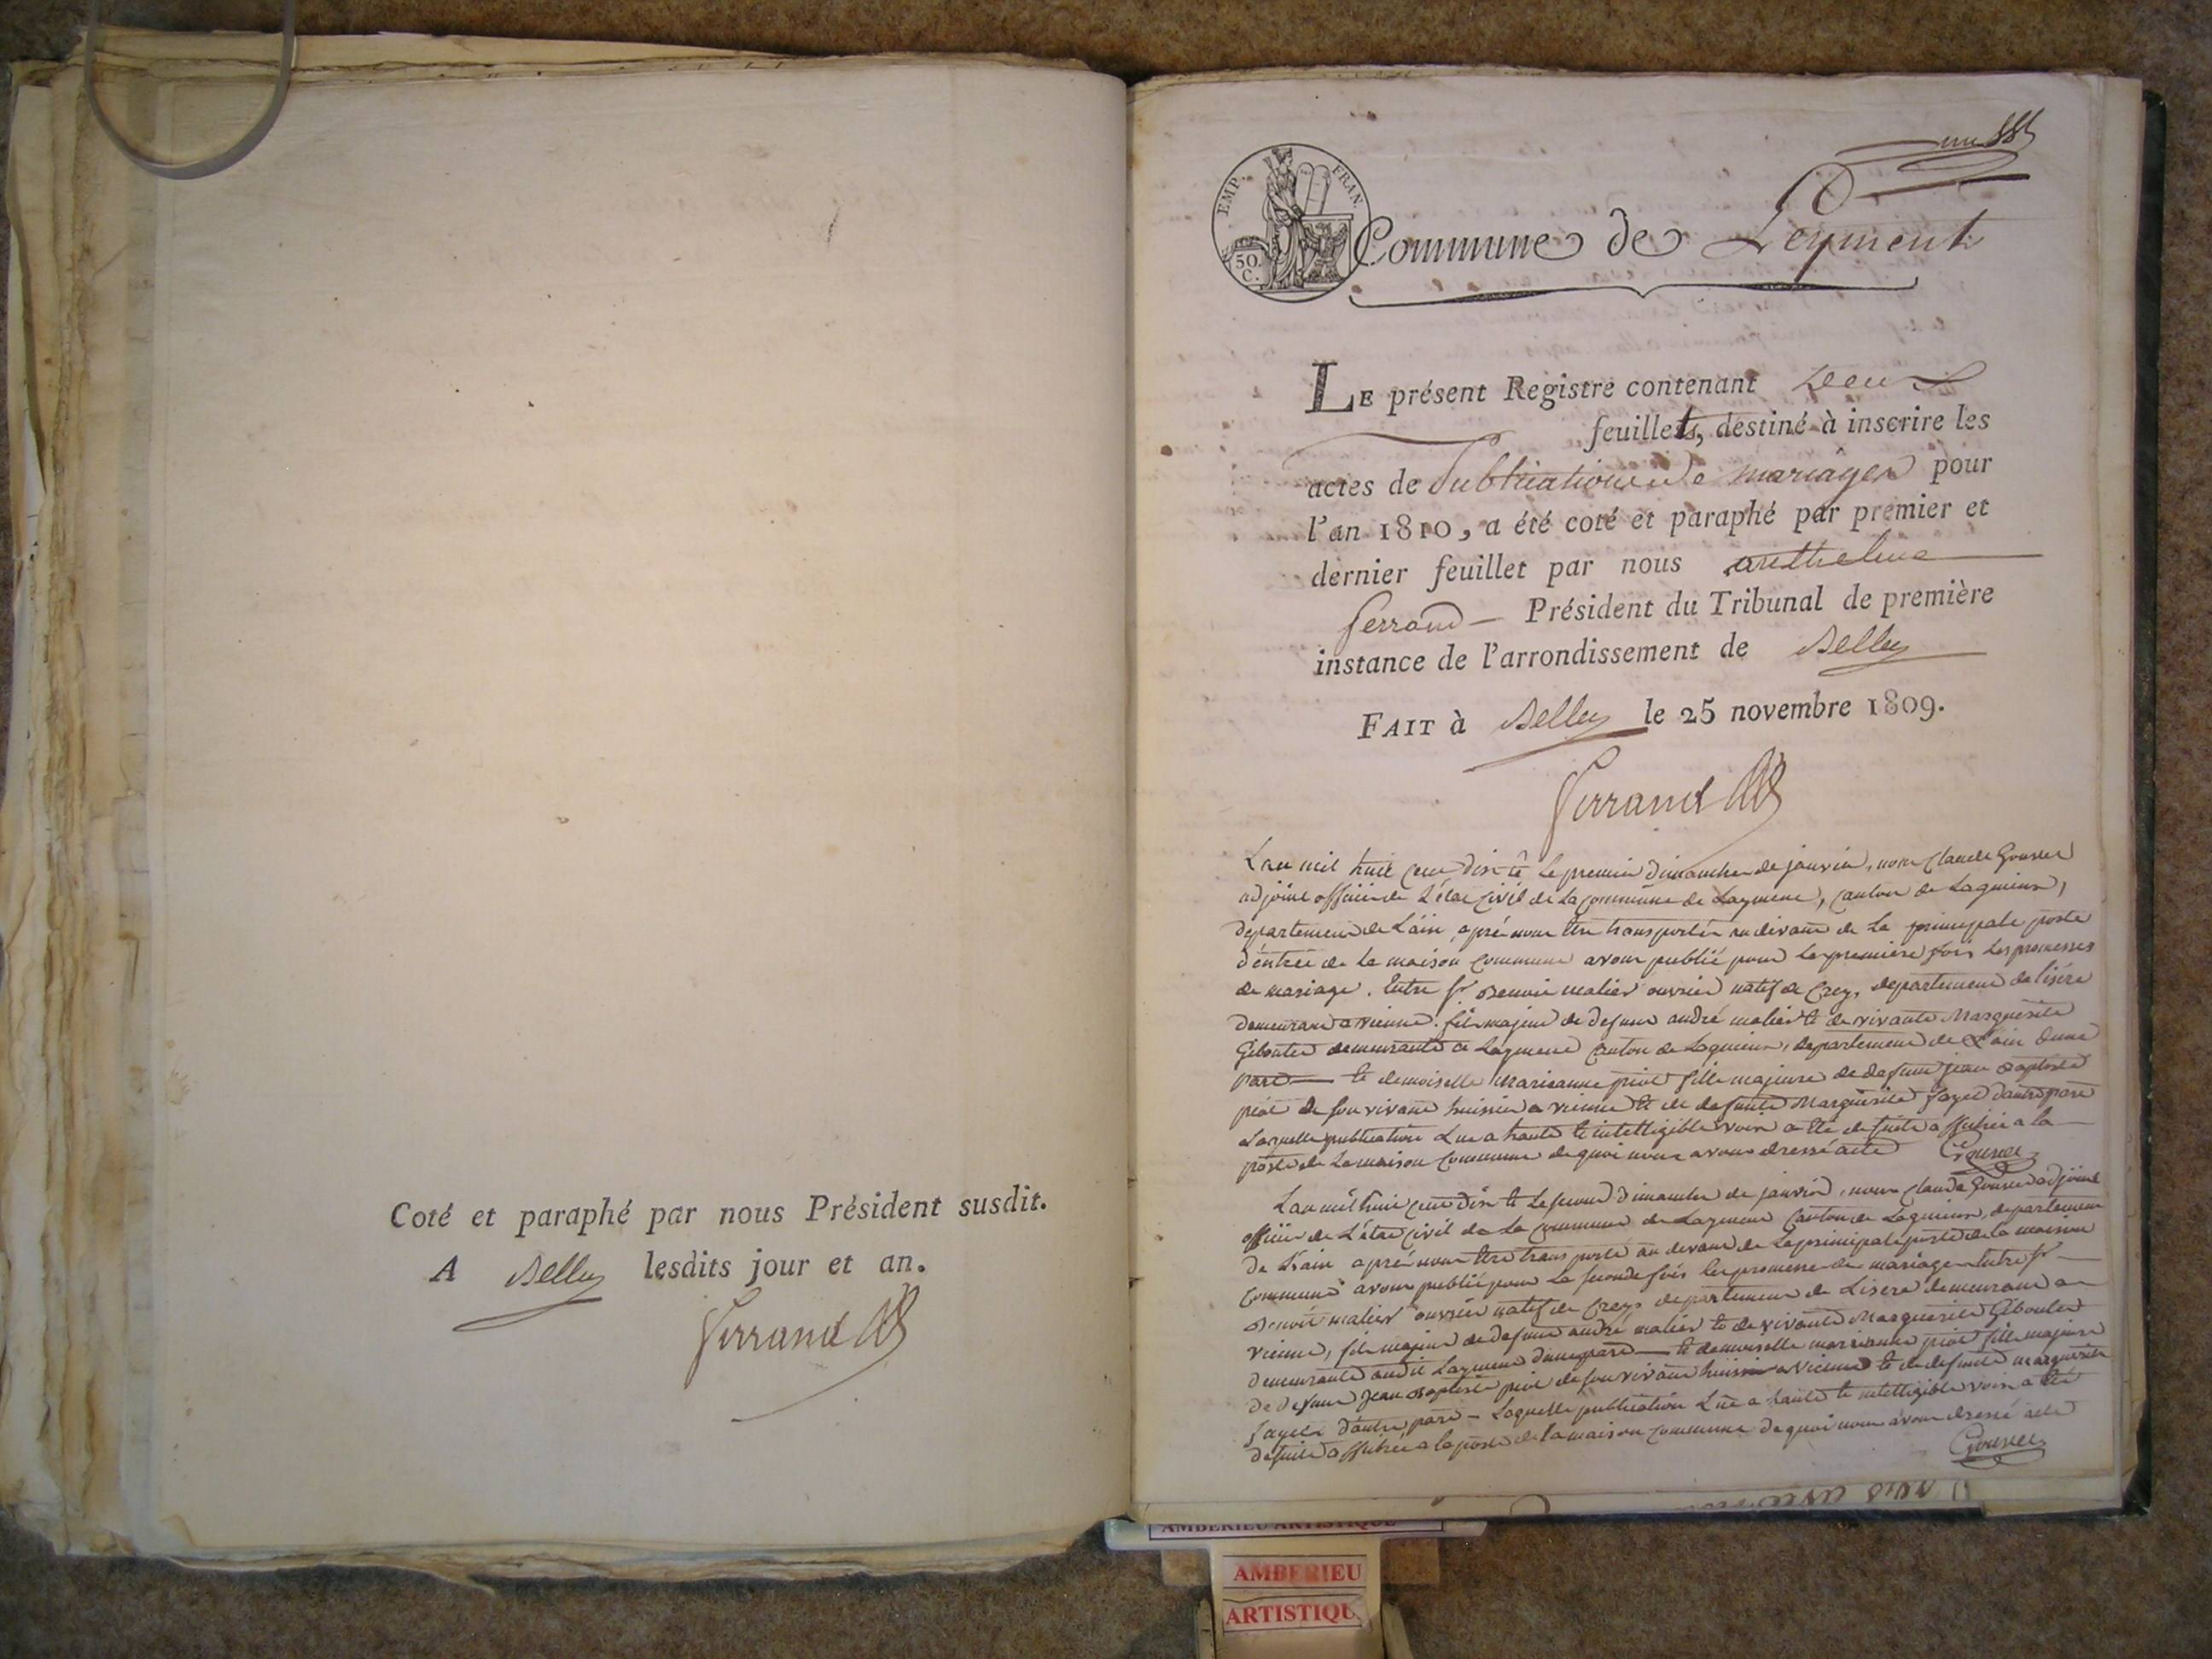 Coté et paraphé par nous Président susdit.
A Belley lesdits jour et an.
Ferrand
EMP. FRAN.
50. C.
Commune de Leyment
LE présent Registre contenant Deux
feuillets, destiné à inscrire les
actes de Publication de mariages pour
l'an 1810, a été coté et paraphé par premier et
dernier feuillet par nous anthelme
ferrand Président du Tribunal de première
instance de l'arrondissement de Belley
FAIT à Belley le 25 novembre 1809.
Ferrand
L'an mil huit cent dix et le premier dimanche de janvier, nous Claude
adjoint officier de L'état civil de la commune de Laymend, canton de Lagnieux,
departement de L'ain, apré nous être transportér au devant de la principale porte
d'entrée de la maison commune avons publié pour la premiere fois les promesses
de mariage. Entre sr. Benoit malier ouvrier natif de Creys, departement de lisére
demeurant a vienne. fils majeur de defunt andré malier et de vivante Marguerite
demeurante a Laymend canton de Lagnieux, departement de L'ain dune
part et demoiselle Marieanne piot fille majeure de defunt jean Baptiste
piot de son vivant huissier a vienne et de defunte Marguerite fayet dautre part
Laquelle publication Lue a haute et intelligible voix a été de suite affichée a la
porte de la maison commune de quoi nous avons dressé acte
L'an mil huit cent dix et Le second dimanche de janvier, nous Claude adjoint
officier de L'état civil de La commune de Laymend canton de Lagnieux, departement
de L'ain apré nous être transporté au devant de La principale porte de la maison
commune avons publié pour La seconde fois les promesse de mariage entre sr
Benoit malier ouvrier natif de Creys departement de Lisere demeurant a
vienne, fils majeur de defunt andré malier et de vivante Marguerite
demeurante audit Laymend dune part et demoiselle marieanne piot fille majeure
de defunt Jean Baptiste piot de son vivant huissier a vienne et de defunte marguerite
fayet dautre part - Laquelle publication Lue a haute et intelligible voix a été
de suite affichée a la porte de la maison commune de quoi nous avons dressé acte
AMBERIEU ARTISTIQUE
AMBERIEU
ARTISTIQU